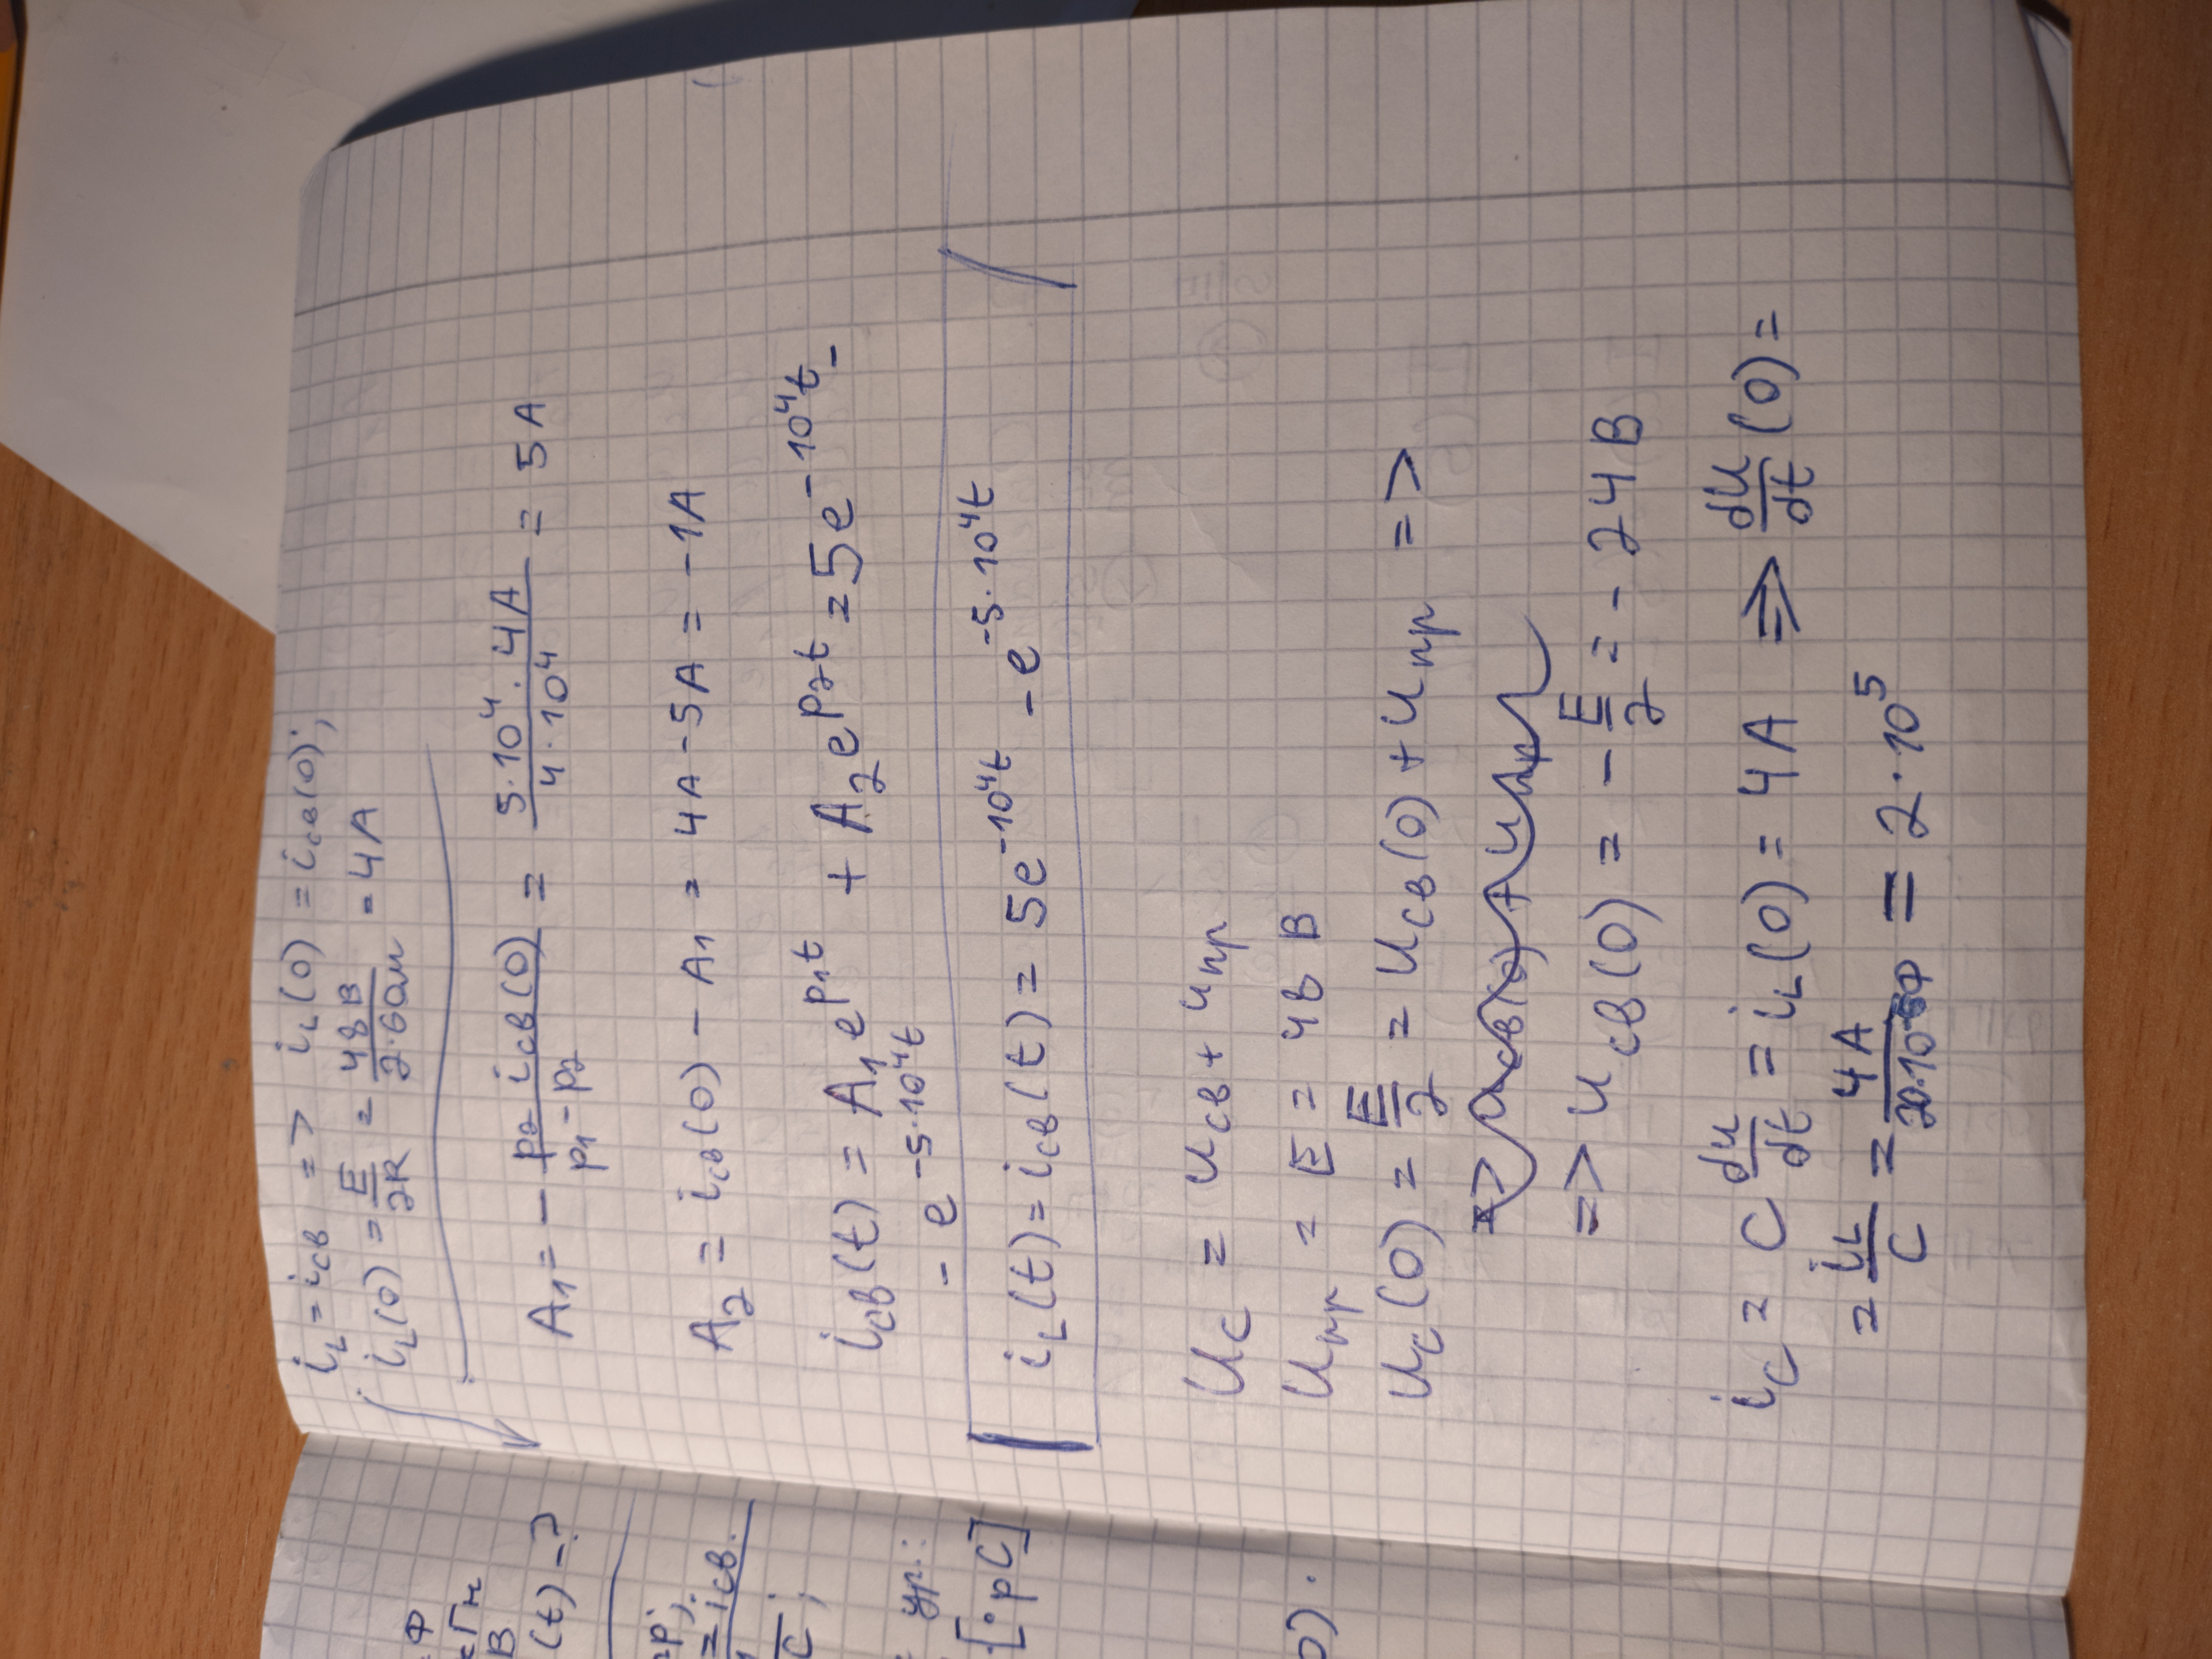 Ф
Гн
В
(t) -?
пр;
= iсв.
C;
ур.:
[· pC]
0).
i_L = iсв => i_L(0) = iсв(0);
i_L(0) = E/2R = 48 В/2·6 Ом = 4 А
A₁ = - p₂ iсв(0)/p₁ - p₂ = 5·10⁴ · 4А/4·10⁴ = 5 А
A₂ = iсв(0) - A₁ = 4А - 5А = -1А
iсв(t) = A₁e^p₁t + A₂e^p₂t = 5e^-10⁴t -
- e^-5·10⁴t
i_L(t) = iсв(t) = 5e^-10⁴t - e^-5·10⁴t
Uс = uсв + uпр
Uпр = E = 48 В
Uс(0) = E/2 = Uсв(0) + Uпр =>
=> Uсв(0) + Uпр
=> Uсв(0) = - E/2 = - 24 В
iс = C du/dt = i_L(0) = 4А => du/dt (0) =
= i_L/C = 4А/20·10⁻⁶Ф = 2·10⁵